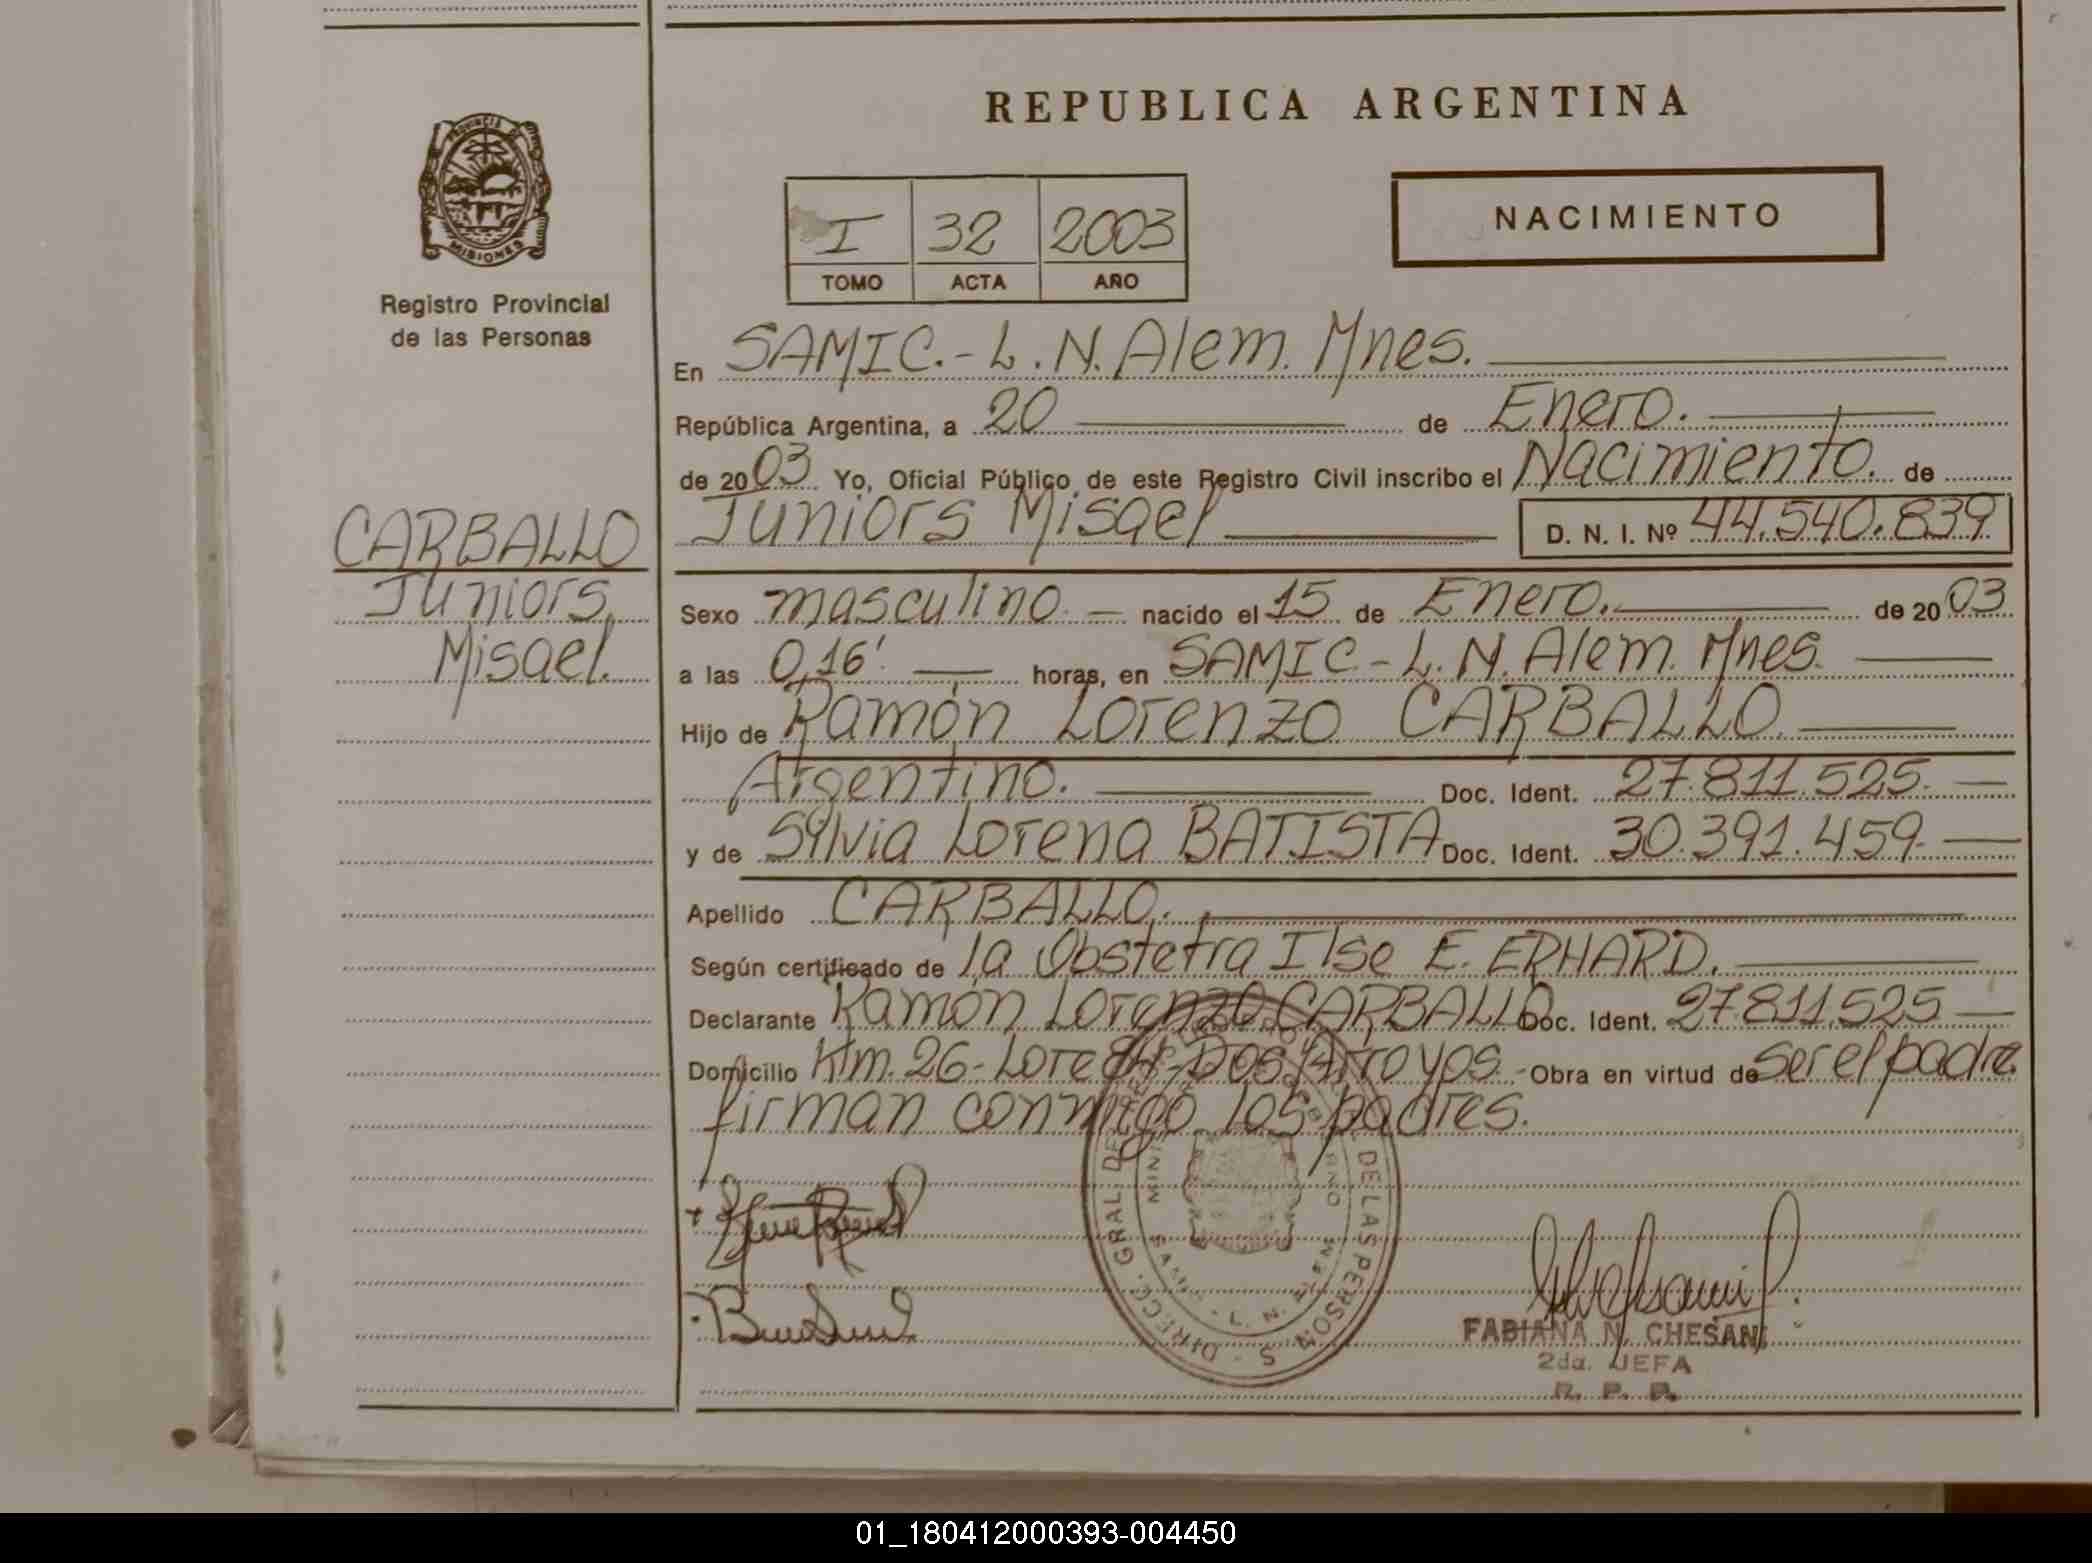 REPUBLICA ARGENTINA
PROVINCIA DE
MISIONES
Registro Provincial
de las Personas
I 32 2003
TOMO ACTA AÑO
NACIMIENTO
CARBALLO
Juniors
Misael.
En SAMIC.- L. N. Alem. Mnes.
República Argentina, a 20 de Enero.
de 2003 Yo, Oficial Público de este Registro Civil inscribo el Nacimiento. de
Juniors Misael D. N. I. Nº 44.540.839
Sexo masculino. nacido el 15 de Enero. de 2003
a las 0,16' horas, en SAMIC - L. N. Alem. Mnes.
Hijo de Ramón Lorenzo CARBALLO.
Argentino. Doc. Ident. 27.811.525.
y de Silvia Lorena BATISTA Doc. Ident. 30.391.459.
Apellido CARBALLO.
Según certificado de la Obstetra Ilse E. ERHARD.
Declarante Ramón Lorenzo CARBALLO Doc. Ident. 27.811.525
Domicilio Km. 26- Dos Arroyos. Obra en virtud de ser el padre
firman conmigo los padres.
DIRECC. GRAL. DE LAS PERSON S
L. N. ALEM
FABIANA N. CHESANI
2da. JEFA
R. P. P.
01_180412000393-004450